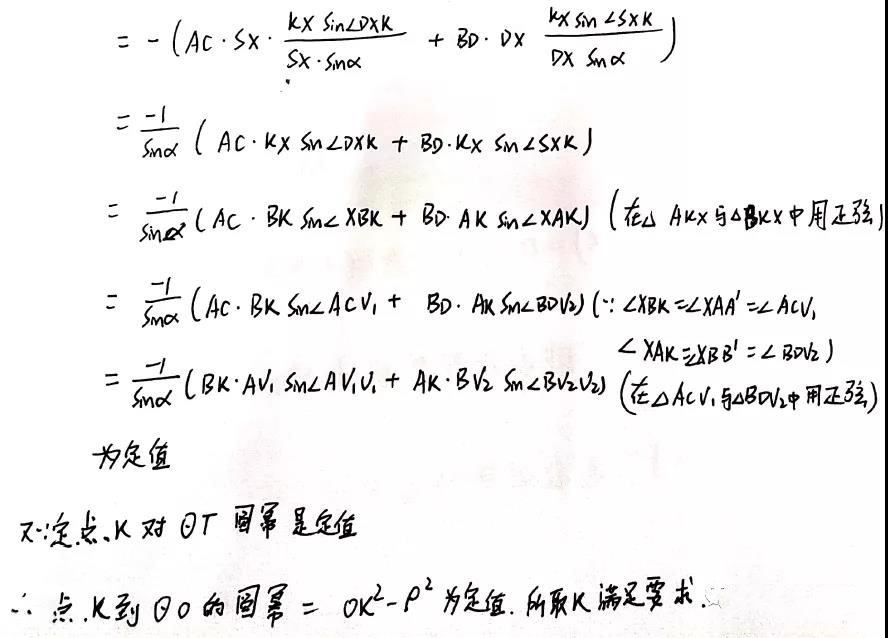 = -(AC·SX·\frac{KX sin∠DXK}{SX·sinα} + BD·DX \frac{KX sin∠SXK}{DX sinα})
= \frac{-1}{sinα}(AC·KX sin∠DXK + BD·KX sin∠SXK)
= \frac{-1}{sinα}(AC·BK sin∠XBK + BD·AK sin∠XAK) (在△AKX与△BKX中用正弦)
= \frac{-1}{sinα}(AC·BK sin∠ACV₁ + BD·AK sin∠BDV₂)(∵∠XBK=∠XAA'=∠ACV₁
∠XAK=∠XBB'=∠BDV₂)
= \frac{-1}{sinα}(BK·AV₁ sin∠AV₁U₁ + AK·BV₂ sin∠BV₂U₂) (在△ACV₁与△BDV₂中用正弦)
为定值
又∵定点K对⊙T圆幂是定值
∴点K到⊙O的圆幂=OK²-ρ²为定值.所取K满足要求.